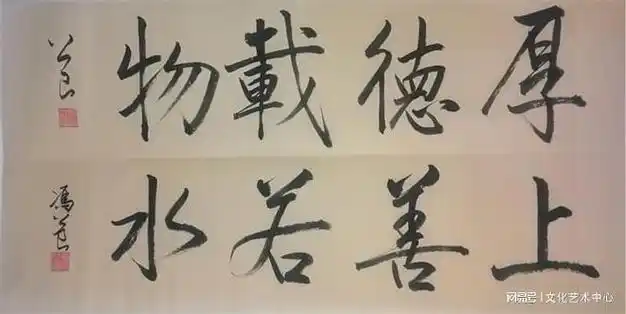 厚德載物
公良
上善若水
馮公良
网易号 | 文化艺术中心